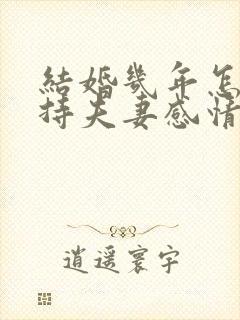 結婚幾年怎
持夫妻感情
逍遥寰宇